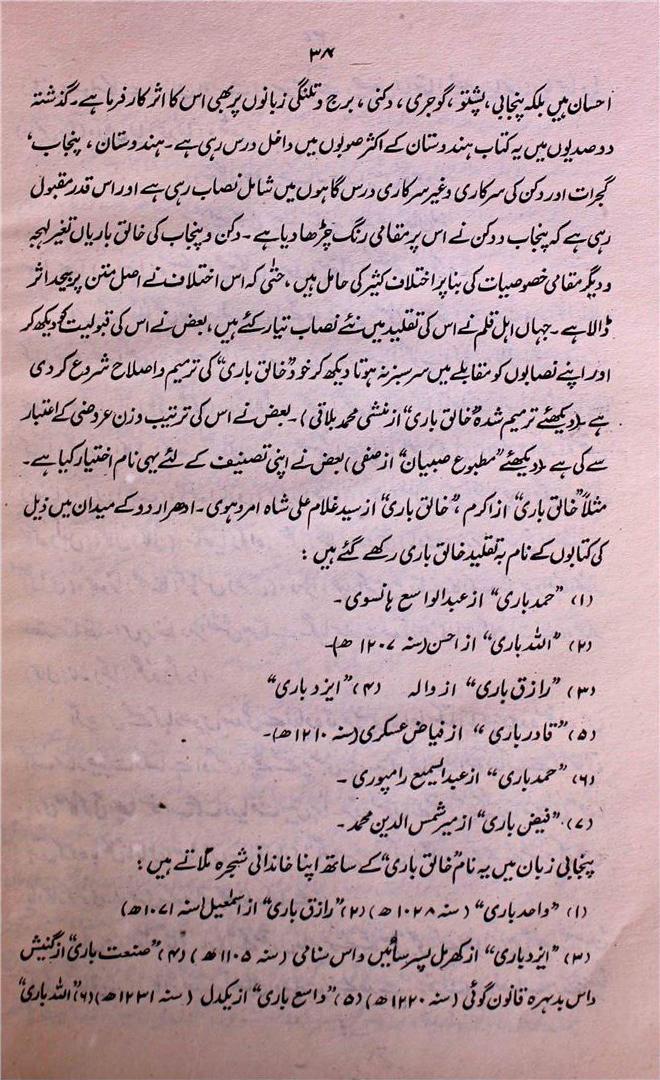 ۳۸
احسان ہیں بلکہ پنجابی، پشتو، گوجری، دکنی، برج و تلنگی زبانوں پر بھی اس کا اثر کار فرما ہے۔ گذشتہ
دو صدیوں میں یہ کتاب ہندوستان کے اکثر صوبوں میں داخل درس رہی ہے۔ ہندوستان، پنجاب،
گجرات اور دکن کی سرکاری و غیر سرکاری درس گاہوں میں شامل نصاب رہی ہے اور اس قدر مقبول
رہی ہے کہ پنجاب و دکن نے اس پر مقامی رنگ چڑھا دیا ہے۔ دکن و پنجاب کی خالق باریاں تغیر لہجہ
و دیگر مقامی خصوصیات کی بنا پر اختلاف کثیر کی حامل ہیں، حتٰی کہ اس اختلاف نے اصل متن پر بیحد اثر
ڈالا ہے۔ جہاں اہل قلم نے اس کی تقلید میں نئے نصاب تیار کئے ہیں، بعض نے اس کی قبولیت کو دیکھ کر
اور اپنے نصابوں کو مقابلے میں سرسبز نہ ہوتا دیکھ کر خود "خالق باری" کی ترمیم و اصلاح شروع کر دی
ہے (دیکھئے ترمیم شدہ "خالق باری" از منشی محمد بلاقی)۔ بعض نے اس کی ترتیب وزن عروضی کے اعتبار
سے کی ہے (دیکھئے "مطبوع صبیان" از صفی) بعض نے اپنی تصنیف کے لئے یہی نام اختیار کیا ہے۔
مثلاً "خالق باری" از اکرم، "خالق باری" از سید غلام علی شاہ امروہوی۔ ادھر اردو کے میدان میں ذیل
کی کتابوں کے نام بہ تقلید خالق باری رکھے گئے ہیں:
(۱) "حمد باری" از عبدالواسع ہانسوی۔
(۲) "اللہ باری" از احسن (سنہ ۱۲۰۷ ھ)۔
(۳) "رازق باری" از والہ (۴) "ایزد باری"
(۵) "قادر باری" از فیاض عسکری (سنہ ۱۲۱۰ ھ)۔
(۶) "حمد باری" از عبدالسمیع رامپوری۔
(۷) "فیض باری" از میر شمس الدین محمد۔
پنجابی زبان میں یہ نام "خالق باری" کے ساتھ اپنا خاندانی شجرہ ملاتے ہیں:
(۱) "واحد باری" (سنہ ۱۰۲۸ ھ) (۲) "رازق باری" از اسمٰعیل (سنہ ۱۰۷۱ ھ)
(۳) "ایزد باری" از کھرمل پسر سائیں داس سنامی (سنہ ۱۱۰۵ ھ) (۴) "صنعت باری" از گنیش
داس بدہرہ قانون گوئی (سنہ ۱۲۲۰ ھ) (۵) "واسع باری" از یکدل (سنہ ۱۲۳۱ ھ) (۶) "اللہ باری"